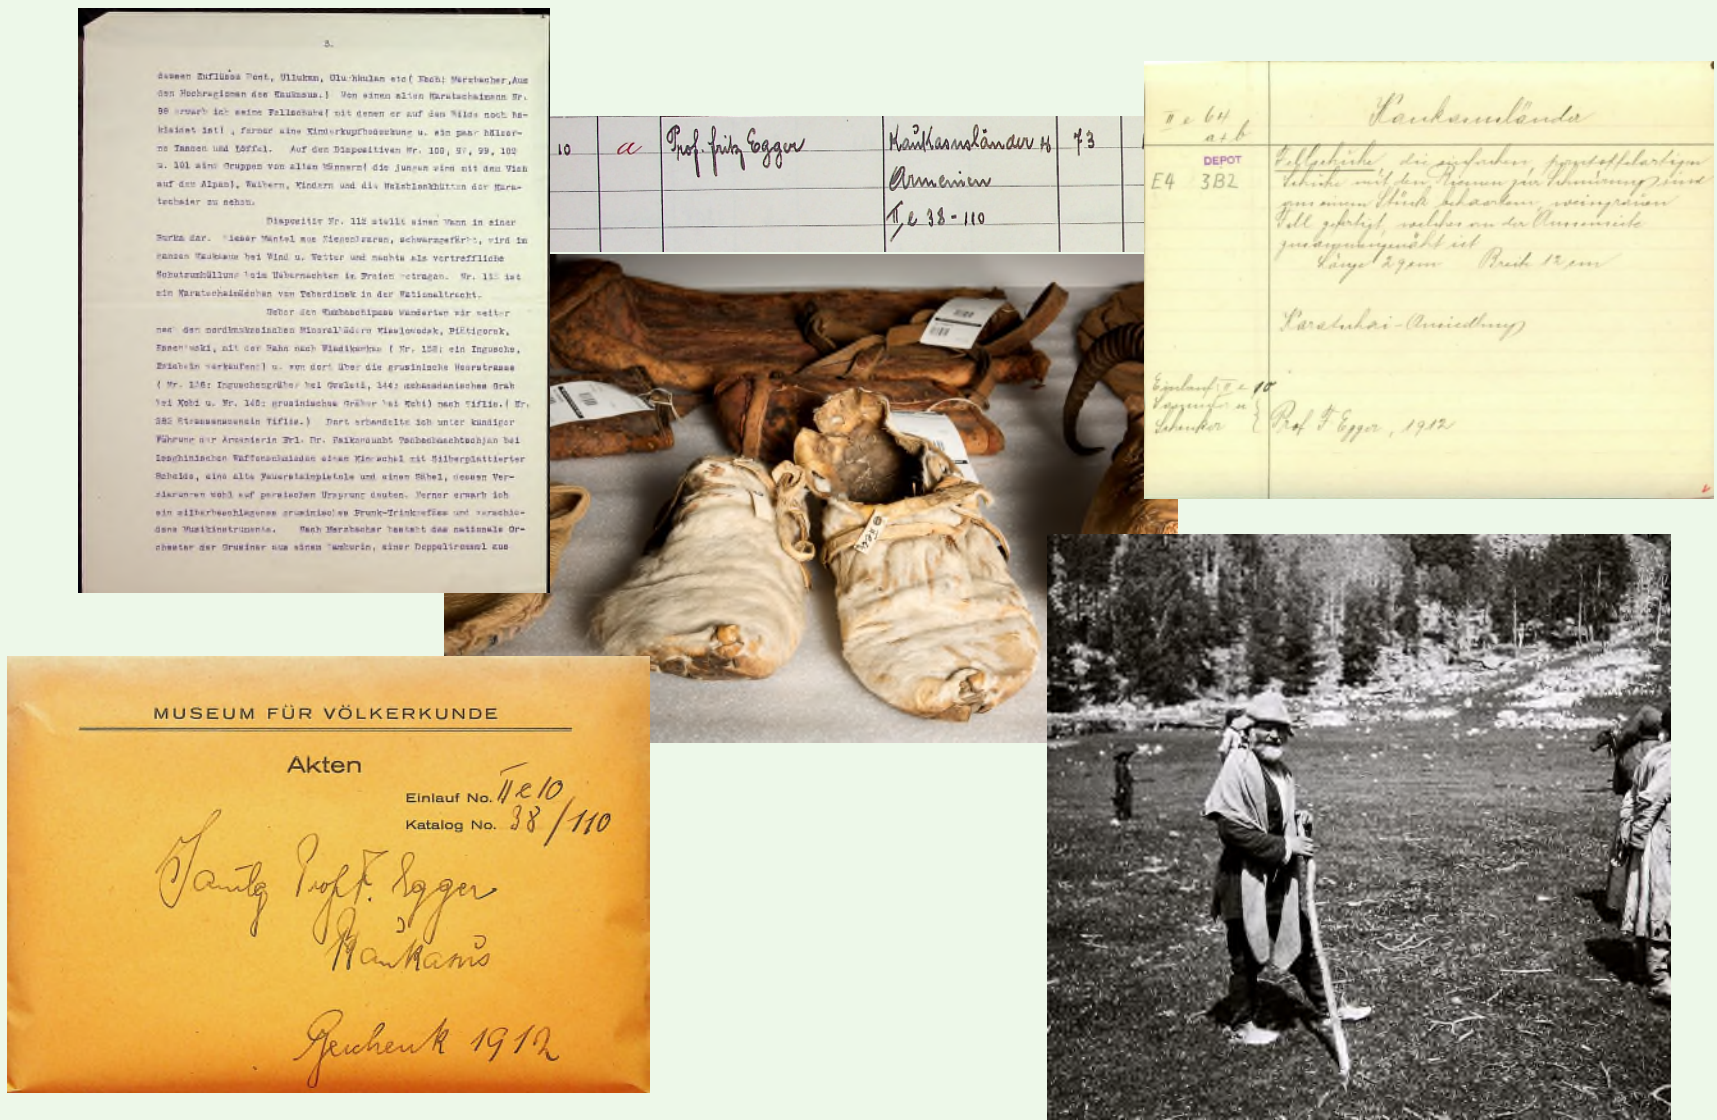 3.
dessen Zuflüsse Pont, Ullukan, Uluchkulan etc( Nach: Merzbacher, Aus
den Hochregionen des Kaukasus.) Von einen alten Karatschaimann Nr.
98 erwarb ich seine Fellschuhe( mit denen er auf dem Bilde noch be-
kleidet ist) , ferner eine Kinderkopfbedeckung u. ein paar hölzer-
ne Tassen und Löffel. Auf den Diapositiven Nr. 100, 97, 99, 102
u. 101 sind Gruppen von alten Männern( die jungen sind mit dem Vieh
auf den Alpen), Weibern, Kindern und die Holzblockhütten der Kara-
tschaier zu sehen.
Diapositiv Nr. 112 stellt einen Mann in einer
Burka dar. Dieser Mantel aus Ziegenhaaren, schwarzgefärbt, wird im
ganzen Kaukasus bei Wind u. Wetter und nachts als vortreffliche
Schutzumhüllung beim Uebernachten im Freien getragen. Nr. ist
ein Karatschaimädchen von Teberdinsk in der Nationaltracht.
Ueber den Kumbaschipass wanderten wir weiter
nach den nordkaukasischen Mineralbädern Kisslowodsk, Pjätigorsk,
Essentuki, mit der Bahn nach Wladikawkas ( Nr. ein Ingusche,
verkaufend) u. von dort über die grusinische Heerstrasse
( Nr. 136: Inguschengräber bei Gveleti, 144: mohamedanisches Grab
bei Kobi u. Nr. 145: grusinisches Gräber bei Kobi) nach Tiflis.( Nr.
282 Strassenscenein Tiflis.) Dort erhandelte ich unter kundiger
Führung der Armenierin Frl. Dr. bei
lesghinischen Waffenschmieden einen Kinschal mit Silberplattierter
Scheide, eine alte Feuersteinpistole und einen Säbel, dessen Ver-
zierungen wohl auf persischen Ursprung deuten. Ferner erwarb ich
ein silberbeschlagenes grusinisches Prunk-Trinkgefäss und verschie-
dene Musikinstrumente. Nach Merzbacher besteht das nationale Or-
chester der Grusiner aus einem Tamburin, einer Doppeltrommel aus
10 a Prof. Fritz Egger Kaukasusländer & 73
Armenien
II e 38-110
II e 64
a+b
Kaukasusländer
DEPOT
E4 3B2
Fellschuhe, die einfachen, pantoffelartigen
Schuhe mit den Riemen zur Schnürung sind
aus einem Stück behaartem, weissgrauen
Fell gefertigt, welches an der Aussenseite
zusammengenäht ist
Länge 29 cm Breite 12 cm
Karatschai-Ansiedlung
Einlauf: II e 10
Sammler u.
Schenker
Prof F. Egger, 1912
MUSEUM FÜR VÖLKERKUNDE
Akten
Einlauf No. II e 10
Katalog No. 38/110
Samlg Prof. F. Egger
Kaukasus
Geschenk 1912